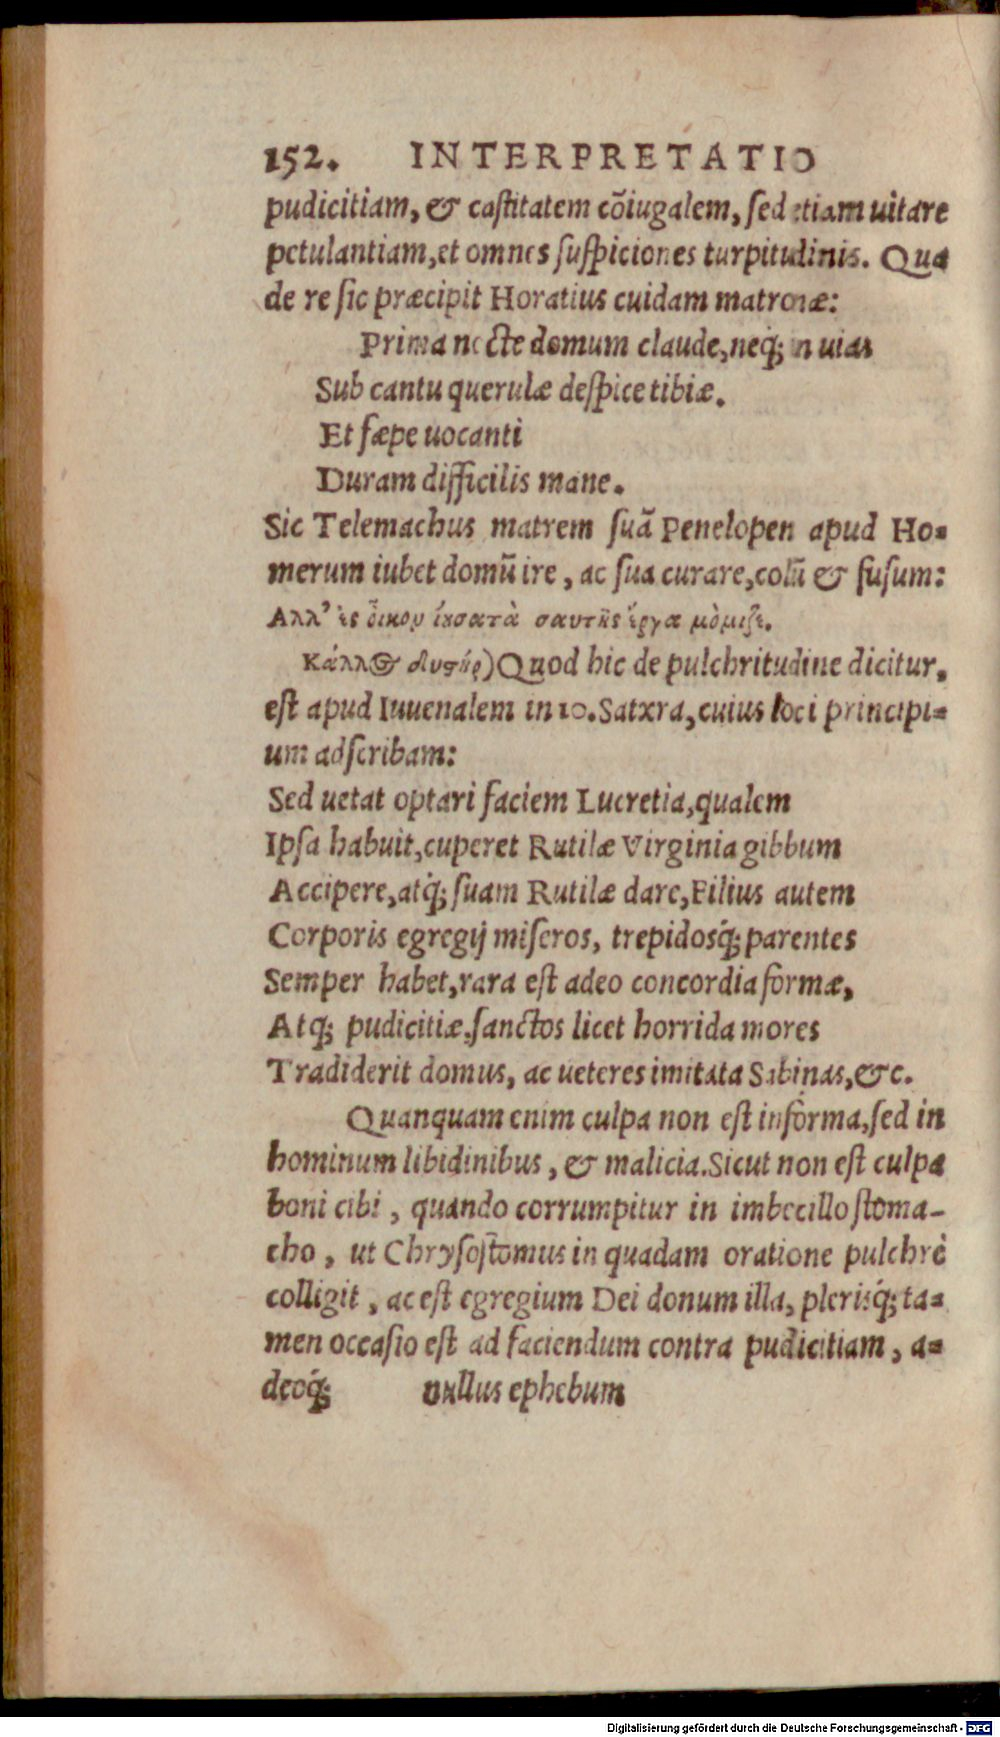 152. INTERPRETATIO
pudicitiam, & castitatem cõiugalem, sed etiam uitare
petulantiam, et omnes suspiciones turpitudinis. Qua
de re sic præcipit Horatius cuidam matronæ:
Prima nocte domum claude, neq; in uias
Sub cantu querulæ despice tibiæ.
Et sæpe uocanti
Duram difficilis mane.
Sic Telemachus matrem suã Penelopen apud Ho-
merum iubet domũ ire, ac sua curare, colũ & fusum:
Αλλ' εἰς οἶκον ἰοῦσα τὰ σαυτῆς ἔργα κόμιζε.
Κάλλος δυσ) Quod hic de pulchritudine dicitur,
est apud Iuuenalem in 10. Satyra, cuius loci principi-
um adscribam:
Sed uetat optari faciem Lucretia, qualem
Ipsa habuit, cuperet Rutilæ Virginia gibbum
Accipere, atq́; suam Rutilæ dare, Filius autem
Corporis egregij miseros, trepidosq́; parentes
Semper habet, rara est adeo concordia formæ,
Atq; pudicitiæ, sanctos licet horrida mores
Tradiderit domus, ac ueteres imitata Sabinas, &c.
Quanquam enim culpa non est in forma, sed in
hominum libidinibus, & malicia. Sicut non est culpa
boni cibi, quando corrumpitur in imbecillo stoma-
cho, ut Chrysostomus in quadam oratione pulchrè
colligit, ac est egregium Dei donum illa, plerisq́; ta-
men occasio est ad faciendum contra pudicitiam, a-
deoq́; nullus ephebum
Digitalisierung gefördert durch die Deutsche Forschungsgemeinschaft - DFG